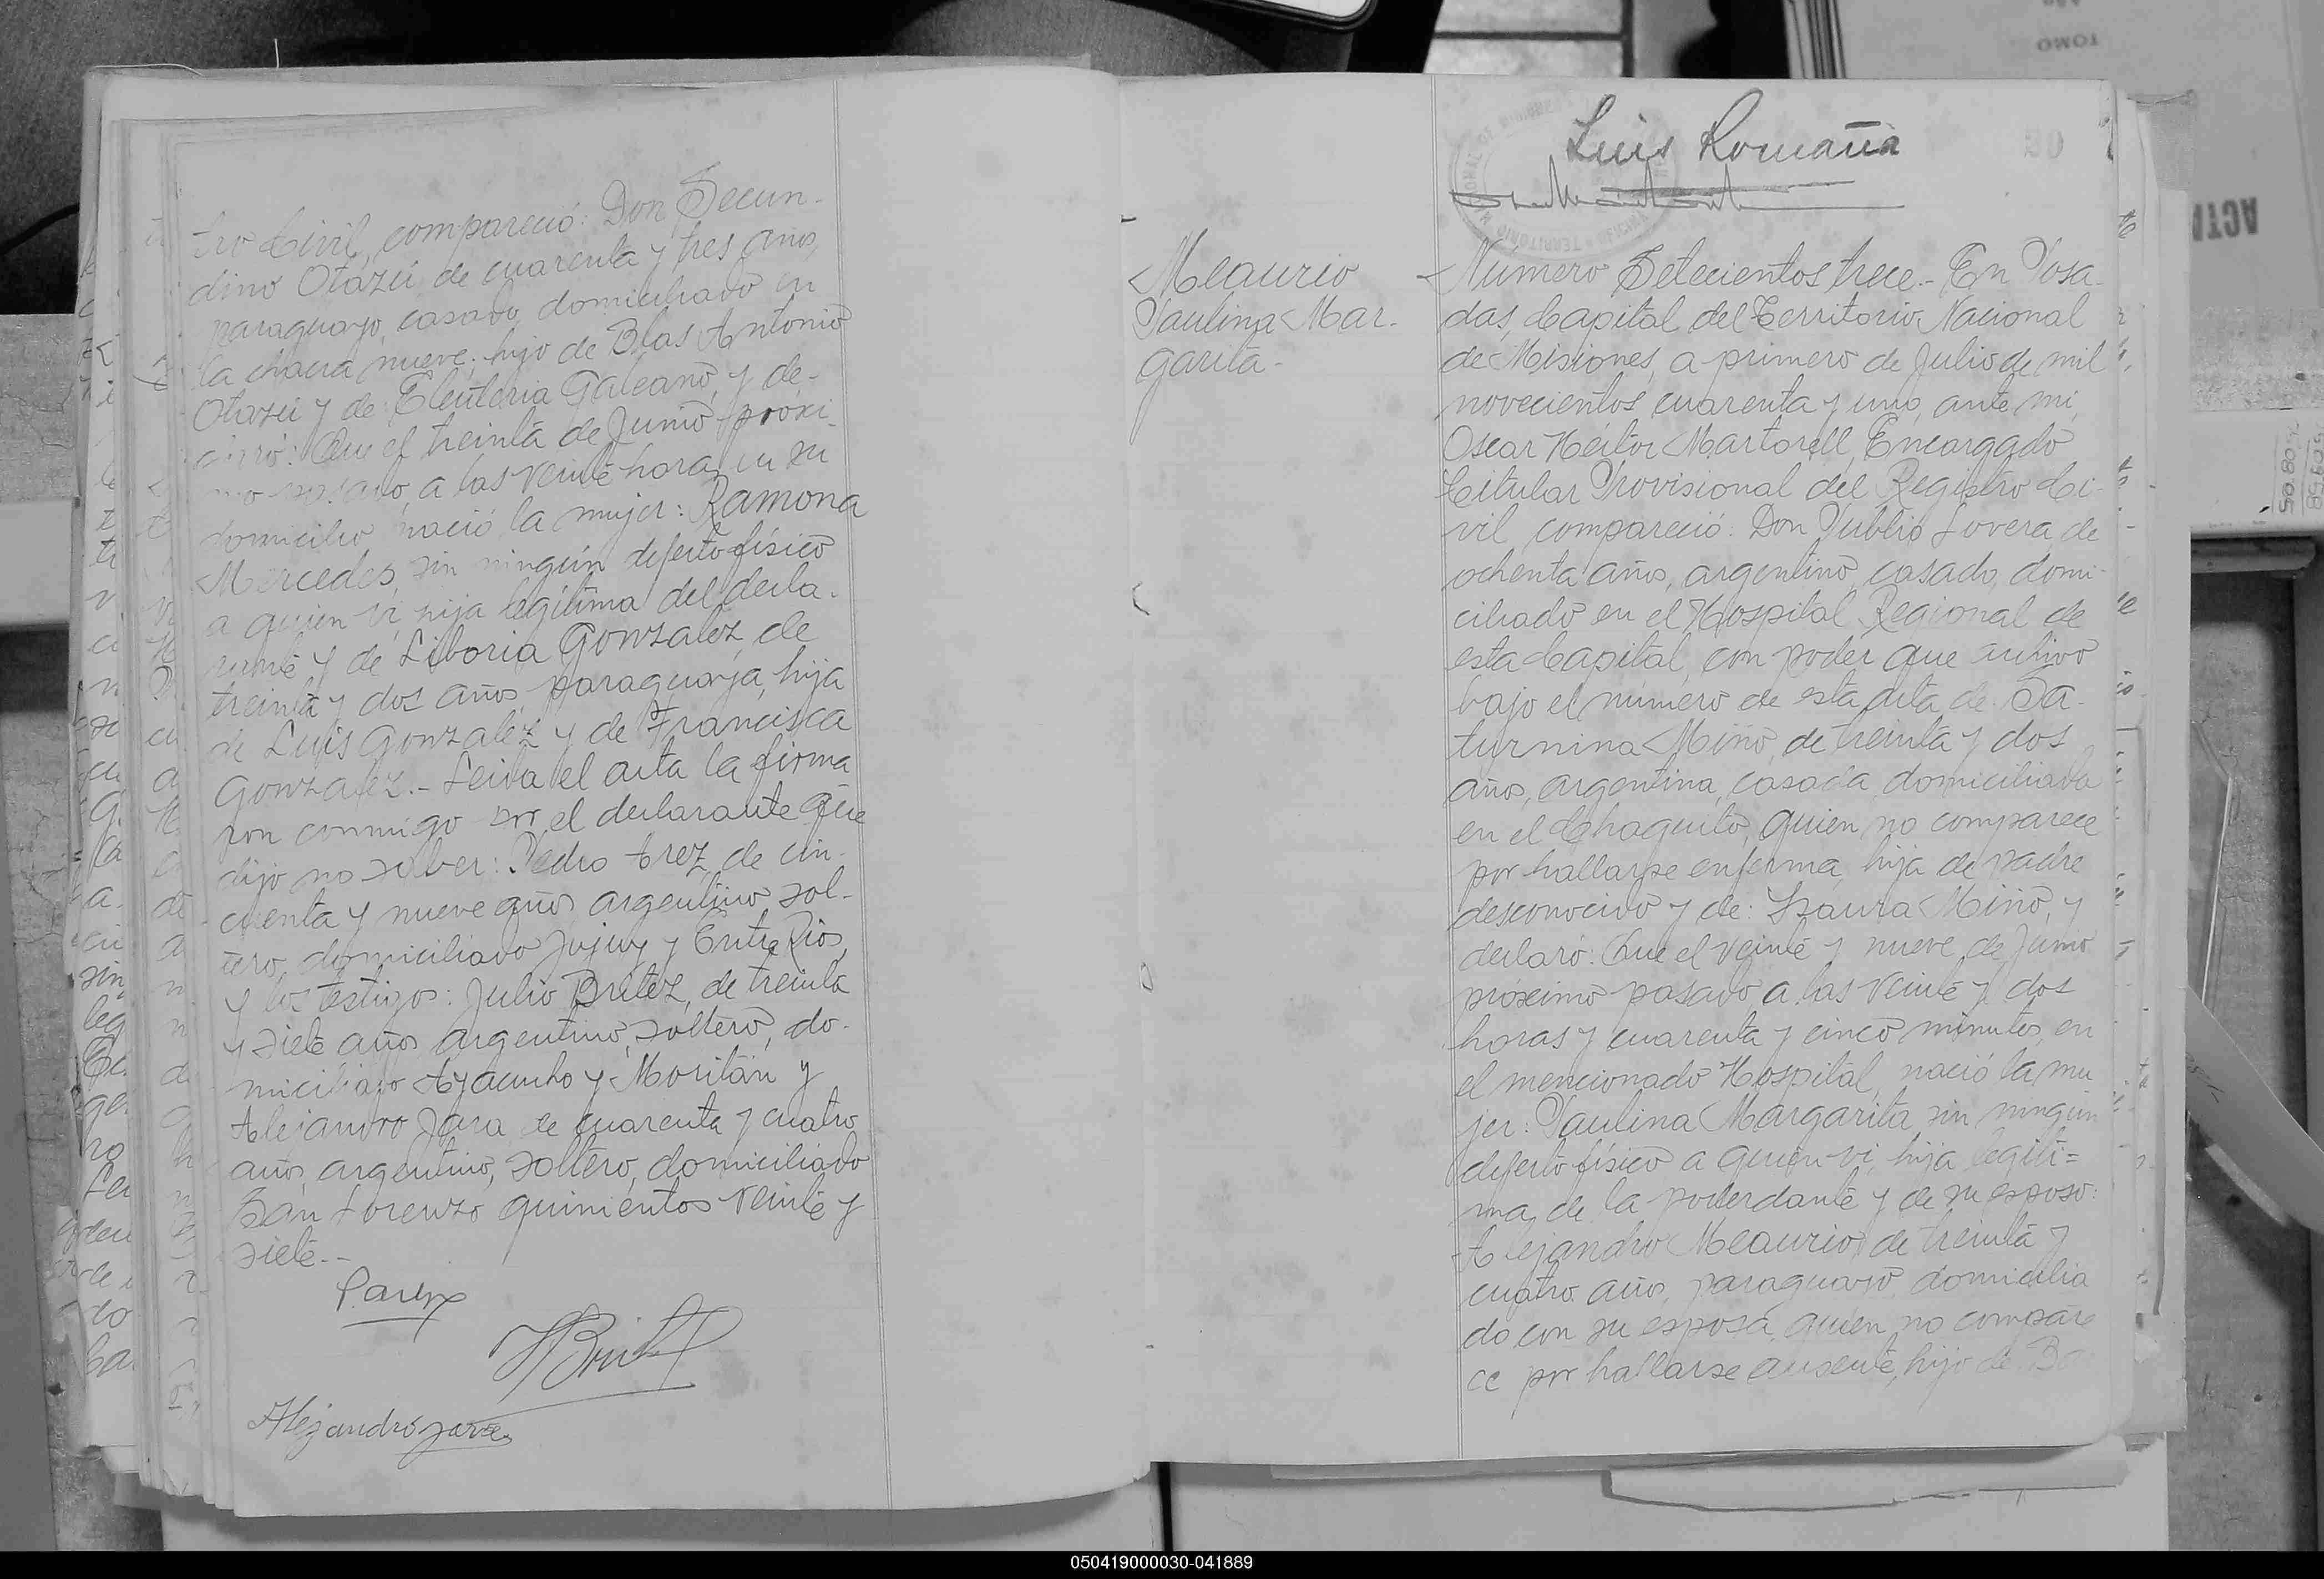 tro Civil, compareció: Don Secun-
dino Otazú, de cuarenta y tres años,
paraguayo, casado, domiciliado en
la chacra nueve, hijo de Blas Antonio
Otazú y de Eleuteria Galeano, y de-
claró: Que el treinta de Junio próxi-
mo pasado, a las veinte horas, en su
domicilio nació la mujer: Ramona
Mercedes, sin ningún defecto físico
a quien vi, hija legítima del decla-
rante y de Liboria Gonzalez, de
treinta y dos años, paraguaya, hija
de Luis Gonzalez y de Francisca
Gonzalez.- Leida el acta la firma
ron conmigo por el declarante que
dijo no saber: Pedro Arez, de cin-
cuenta y nueve años, argentino, sol-
tero, domiciliado Jujuy y Entre Rios,
y los testigos: Julio Britez, de treinta
y siete años, argentino, soltero, do-
miciliado Ayacucho y Moritán y
Alejandro Jara de cuarenta y cuatro
años, argentino, soltero, domiciliado
San Lorenzo quinientos veinte y
siete.--
P. Arez
J Britez
Alejandro Jara
Luis Romaña
Meaurio
Paulina Mar-
garita-
Numero Setecientos trece.- En Posa-
das, Capital del Territorio Nacional
de Misiones, a primero de Julio de mil
novecientos cuarenta y uno, ante mi,
Oscar Héctor Martorell, Encargado
Titular Provisional del Registro Ci-
vil, compareció: Don Publio Lovera de
ochenta años, argentino, casado, domi-
ciliado en el Hospital Regional de
esta Capital, con poder que archivo
bajo el número de esta acta de: Sa-
turnina Miño, de treinta y dos
años, argentina, casada, domiciliada
en el Chaquito, quien no comparece
por hallarse enferma, hija de padre
desconocido y de: Isaura Miño, y
declaró: Que el veinte y nueve de Junio
próximo pasado, a las veinte y dos
horas y cuarenta y cinco minutos, en
el mencionado Hospital, nació la mu
jer: Paulina Margarita, sin ningún
defecto físico a quien vi, hija legíti=
ma, de la poderdante y de su esposo:
Alejandro Meaurio, de treinta y
cuatro años, paraguayo, domicilia
do con su esposa, quien no compare
ce por hallarse ausente, hijo de
050419000030-041889